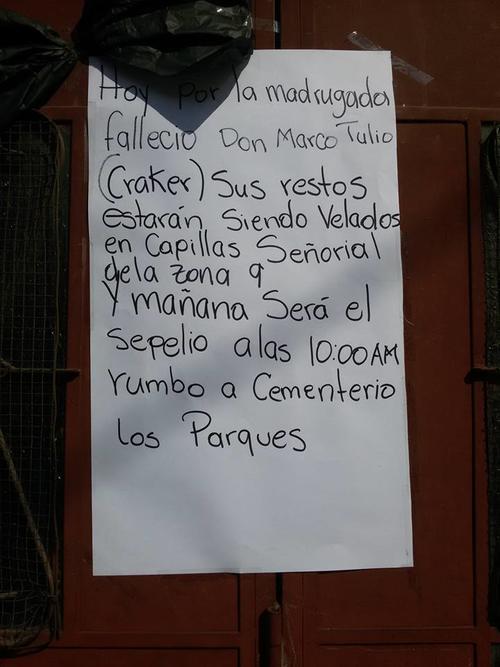 Hoy por la madrugada
falleció Don Marco Tulio
(Craker) Sus restos
estarán siendo Velados
en Capillas Señorial
dela zona 9
y mañana Será el
sepelio alas 10:00AM
rumbo a Cementerio
los Parques